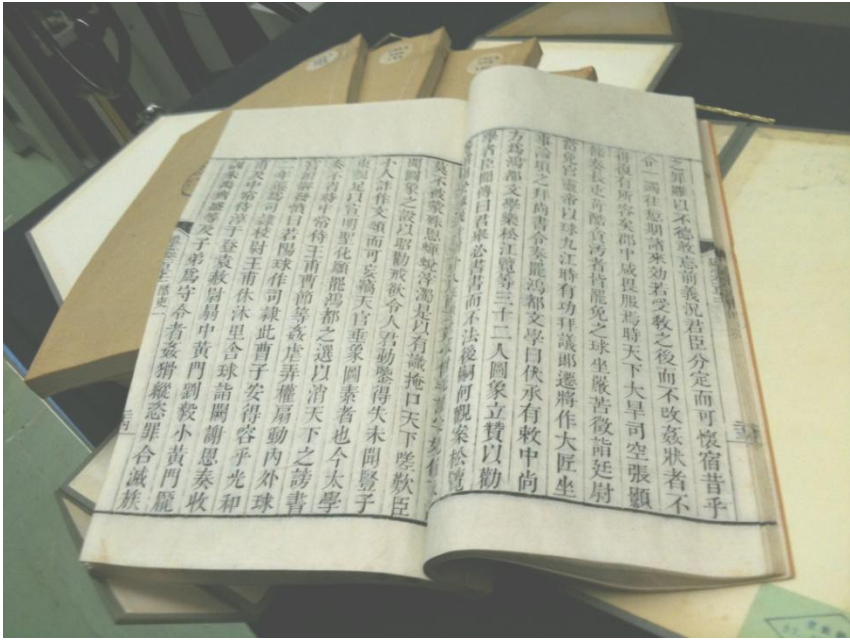 之罪雖以不德敢忘前義況君臣分定而可懷宿昔乎
今一蠲往愆期諸來效若受教之後而不改姦狀者不
得復有所容矣郡中咸畏服焉時天下大旱司空張顥
條奏長吏苛酷貪汚者皆罷免之球坐嚴苦徵詣廷尉
當免官靈帝以球九江時有功拜議郎遷將作大匠坐
事論頃之拜尚書令奏罷鴻都文學曰伏承有敕中尚
方爲鴻都文學樂松江覽等三十二人圖象立贊以勸
學者臣聞傳曰君舉必書書而不法後嗣何觀案松覽
莫不被蒙殊恩蟬蛻滓濁是以有識掩口天下嗟歎臣
聞圖象之設以昭勸戒欲令人君動鑒得失未聞豎子
小人詐作文頌而可妄竊天官垂象圖素者也今太學
東觀足以宣明聖化願罷鴻都之選以消天下之謗書
奏不省時中常侍王甫曹節等姦虐弄權扇動內外球
嘗拊髀發憤曰若陽球作司隸此曹子安得容乎光和
二年遷爲司隸校尉王甫休沐里舍球詣闕謝恩奏收
甫及中常侍淳于登袁赦中黃門劉毅小黃門龐
訓朱禹齊盛等及子弟爲守令者姦猾縱恣罪合滅族